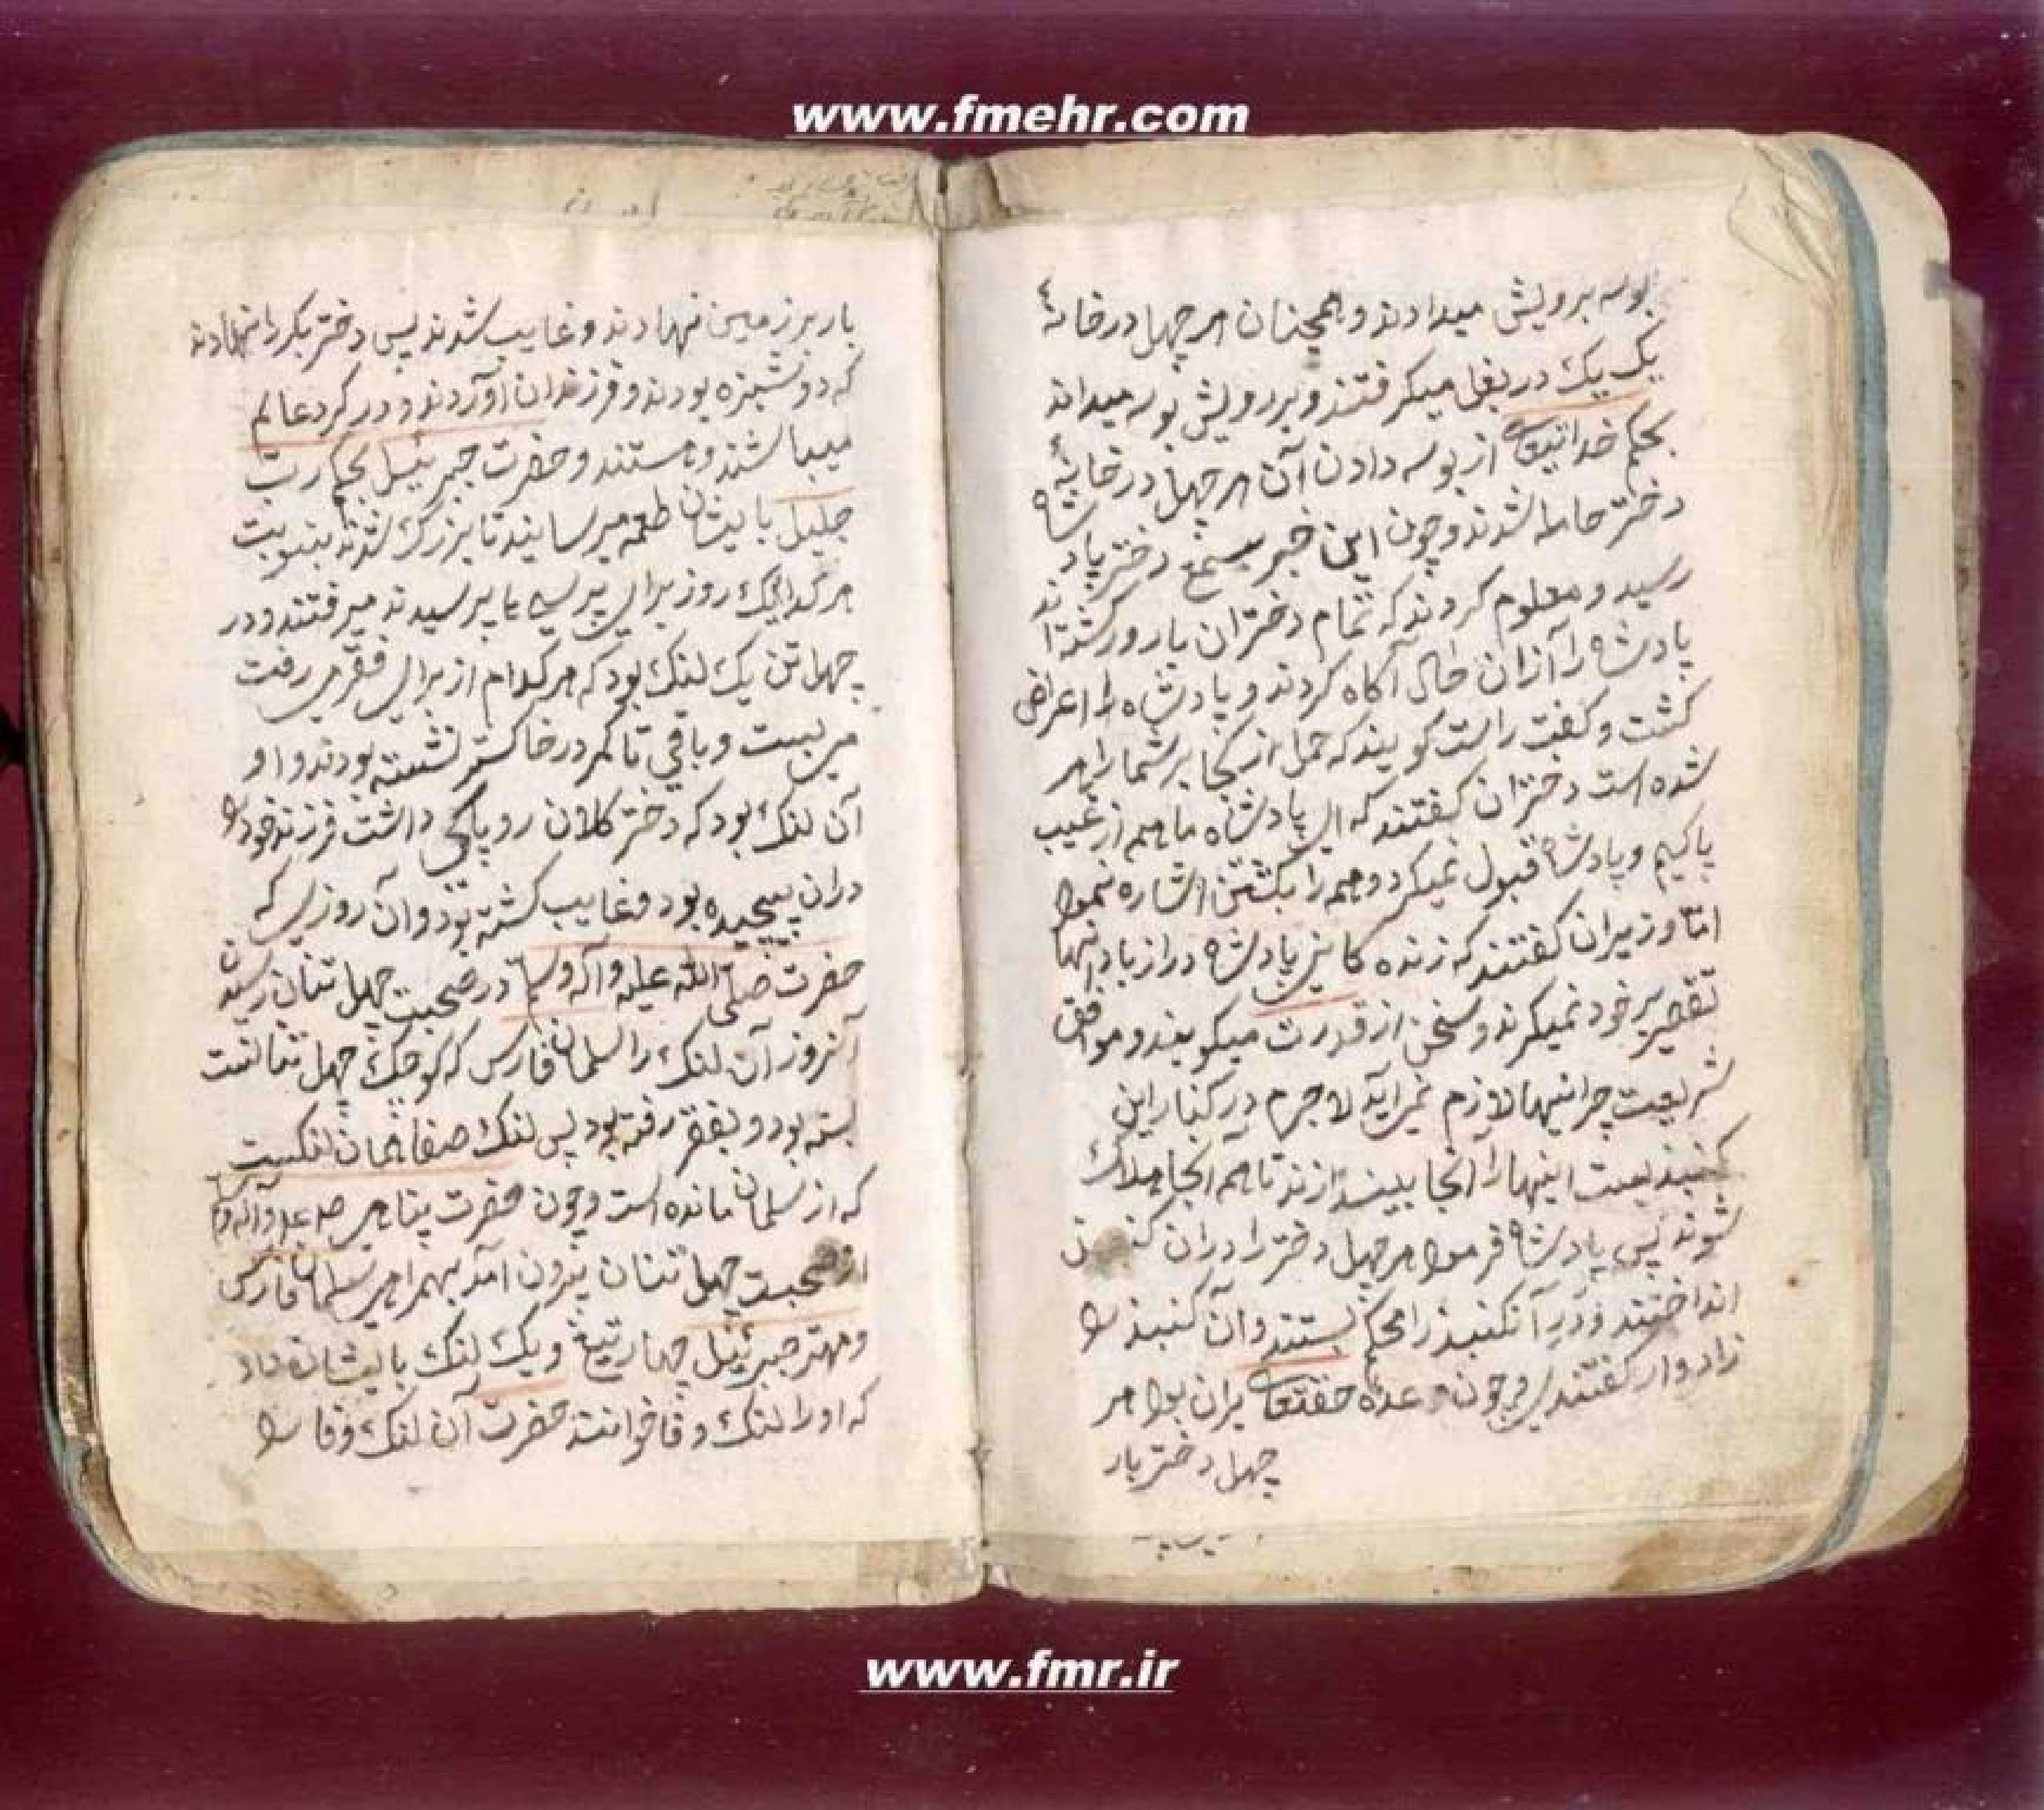 www.fmehr.com
بوسه برویش میدادند و همچنان هر چهل در خانهٔ
یک یک در بغل میگرفتند و بر رویش بوسه میداند
بحکم خدایتعالی از بوسه دادن آن هر چهل در خانهٔ
دختر حامله شدند و چون این خبر بسمع دختر پادشاه
رسید و معلوم کردند که تمام دختران بارور گشته اند
پادشاه را از آن حال آگاه کردند و پادشاه را اعراض
گشت و گفت راست گویند که حمل از کجا بر شما را هر
شده است دختران گفتند که ای پادشاه ما همه از غیب
پاکیم و پادشاه قبول نمیکرد و همه را بکشتن اشاره نمود
اما وزیران گفتند که زنده پادشاه دراز باد اینها
تقصیر بر خود نمیگرند و سخن از قدرت میگویند و موافق
شریعت چرا اینها لازم نمی آید لاجرم در کنار این
گنبذیست اینها را آنجا بیندازند تا هم آنجا هلاک
شوند پس پادشاه فرمود هر چهل دختر را در آن
انداختند و در آن گنبذ را محکم بستند و آن گنبذ را
گفتندی و چون وعده حقتعالی بود هر
چهل دختر بار
بار بر زمین نهادند و غایب شدند پس دختر بکر نهادند
که دوشیزه بودند و فرزندان آوردند و در گرد عالم
میباشند و هستند و حضرت جبرئیل بحکم رب
جلیل بایشان طعمه میرسانید تا بزرگ شدند بنوبت
هر کدا یک روز برای میرفتند و در
چهل تن یک لنگ بود که هر کدام از برای فقر می رفت
می بست و باقی تا کمر در خاکستر نشسته بودند و او
آن لنگ بود که دختر کلان رو پاکی داشت فرزند خود را
در ان پیچیده بود و غایب گشته بود و آن روزی که
حضرت صلی الله علیه و آله وسلم در صحبت چهل تنان رسیدن
آنروز آن لنگ را سلمان فارسی که کوچک چهل تنانست
بسته بود و بفقر رفته بود پس لنگ صفا همان لنگست
که از سلمان مانده است و چون حضرت پناهی صلی علیه و آله وسلم
از صحبت چهل تنان بیرون آمد بهمراهی سلمان فارسی
و مهتر جبرئیل چهار تیغ و یک لنگ بایشان داد
که او را لنگ وفا خوانند حضرت آن لنگ وفا را
www.fmr.ir